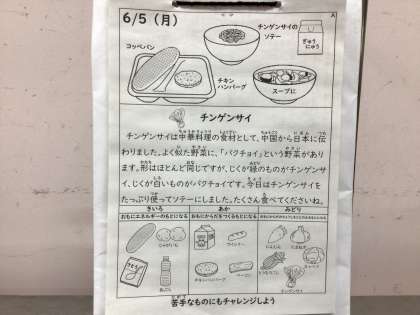 6/5（月）
A
チンゲンサイの
ソテー
ぎゅう
にゅう
コッペパン
チキン
ハンバーグ
スープに
チンゲンサイ
チンゲンサイは中華料理の食材として、中国から日本に伝
わりました。よく似た野菜に、「パクチョイ」という野菜があり
ます。形はほとんど同じですが、じくが緑のものがチンゲンサ
イ、じくが白いものがパクチョイです。今日はチンゲンサイを
たっぷり使ってソテーにしました。たくさん食べてくださいね。
きいろ
あか
みどり
おもにエネルギーのもとになる
おもにからだをつくるもとになる
じゃがいも
あぶら
ウインナー
チキンハンバーグ
ベーコン
にんじん
たまねぎ
キャベツ
とうもろこし
チンゲンサイ
苦手なものにもチャレンジしよう